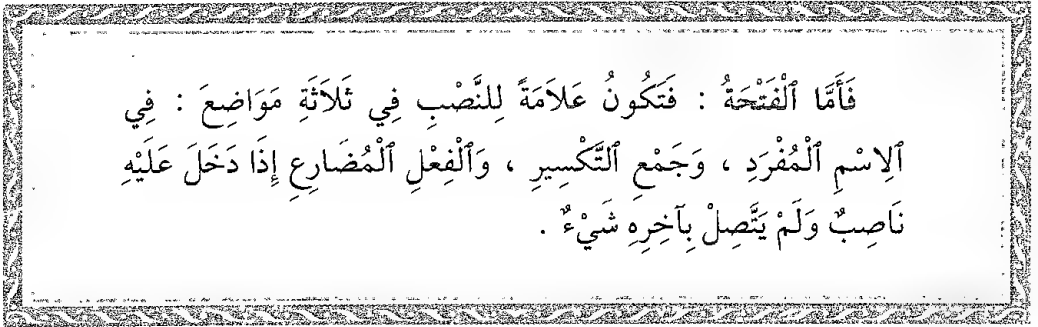 فَأَمَّا ٱلْفَتْحَةُ : فَتَكُونُ عَلاَمَةً لِلنَّصْبِ فِي ثَلاَثَةِ مَوَاضِعَ : فِي
ٱلِاسْمِ ٱلْمُفْرَدِ ، وَجَمْعِ ٱلتَّكْسِيرِ ، وَٱلْفِعْلِ ٱلْمُضَارِعِ إِذَا دَخَلَ عَلَيْهِ
نَاصِبٌ وَلَمْ يَتَّصِلْ بِآخِرِهِ شَيْءٌ .